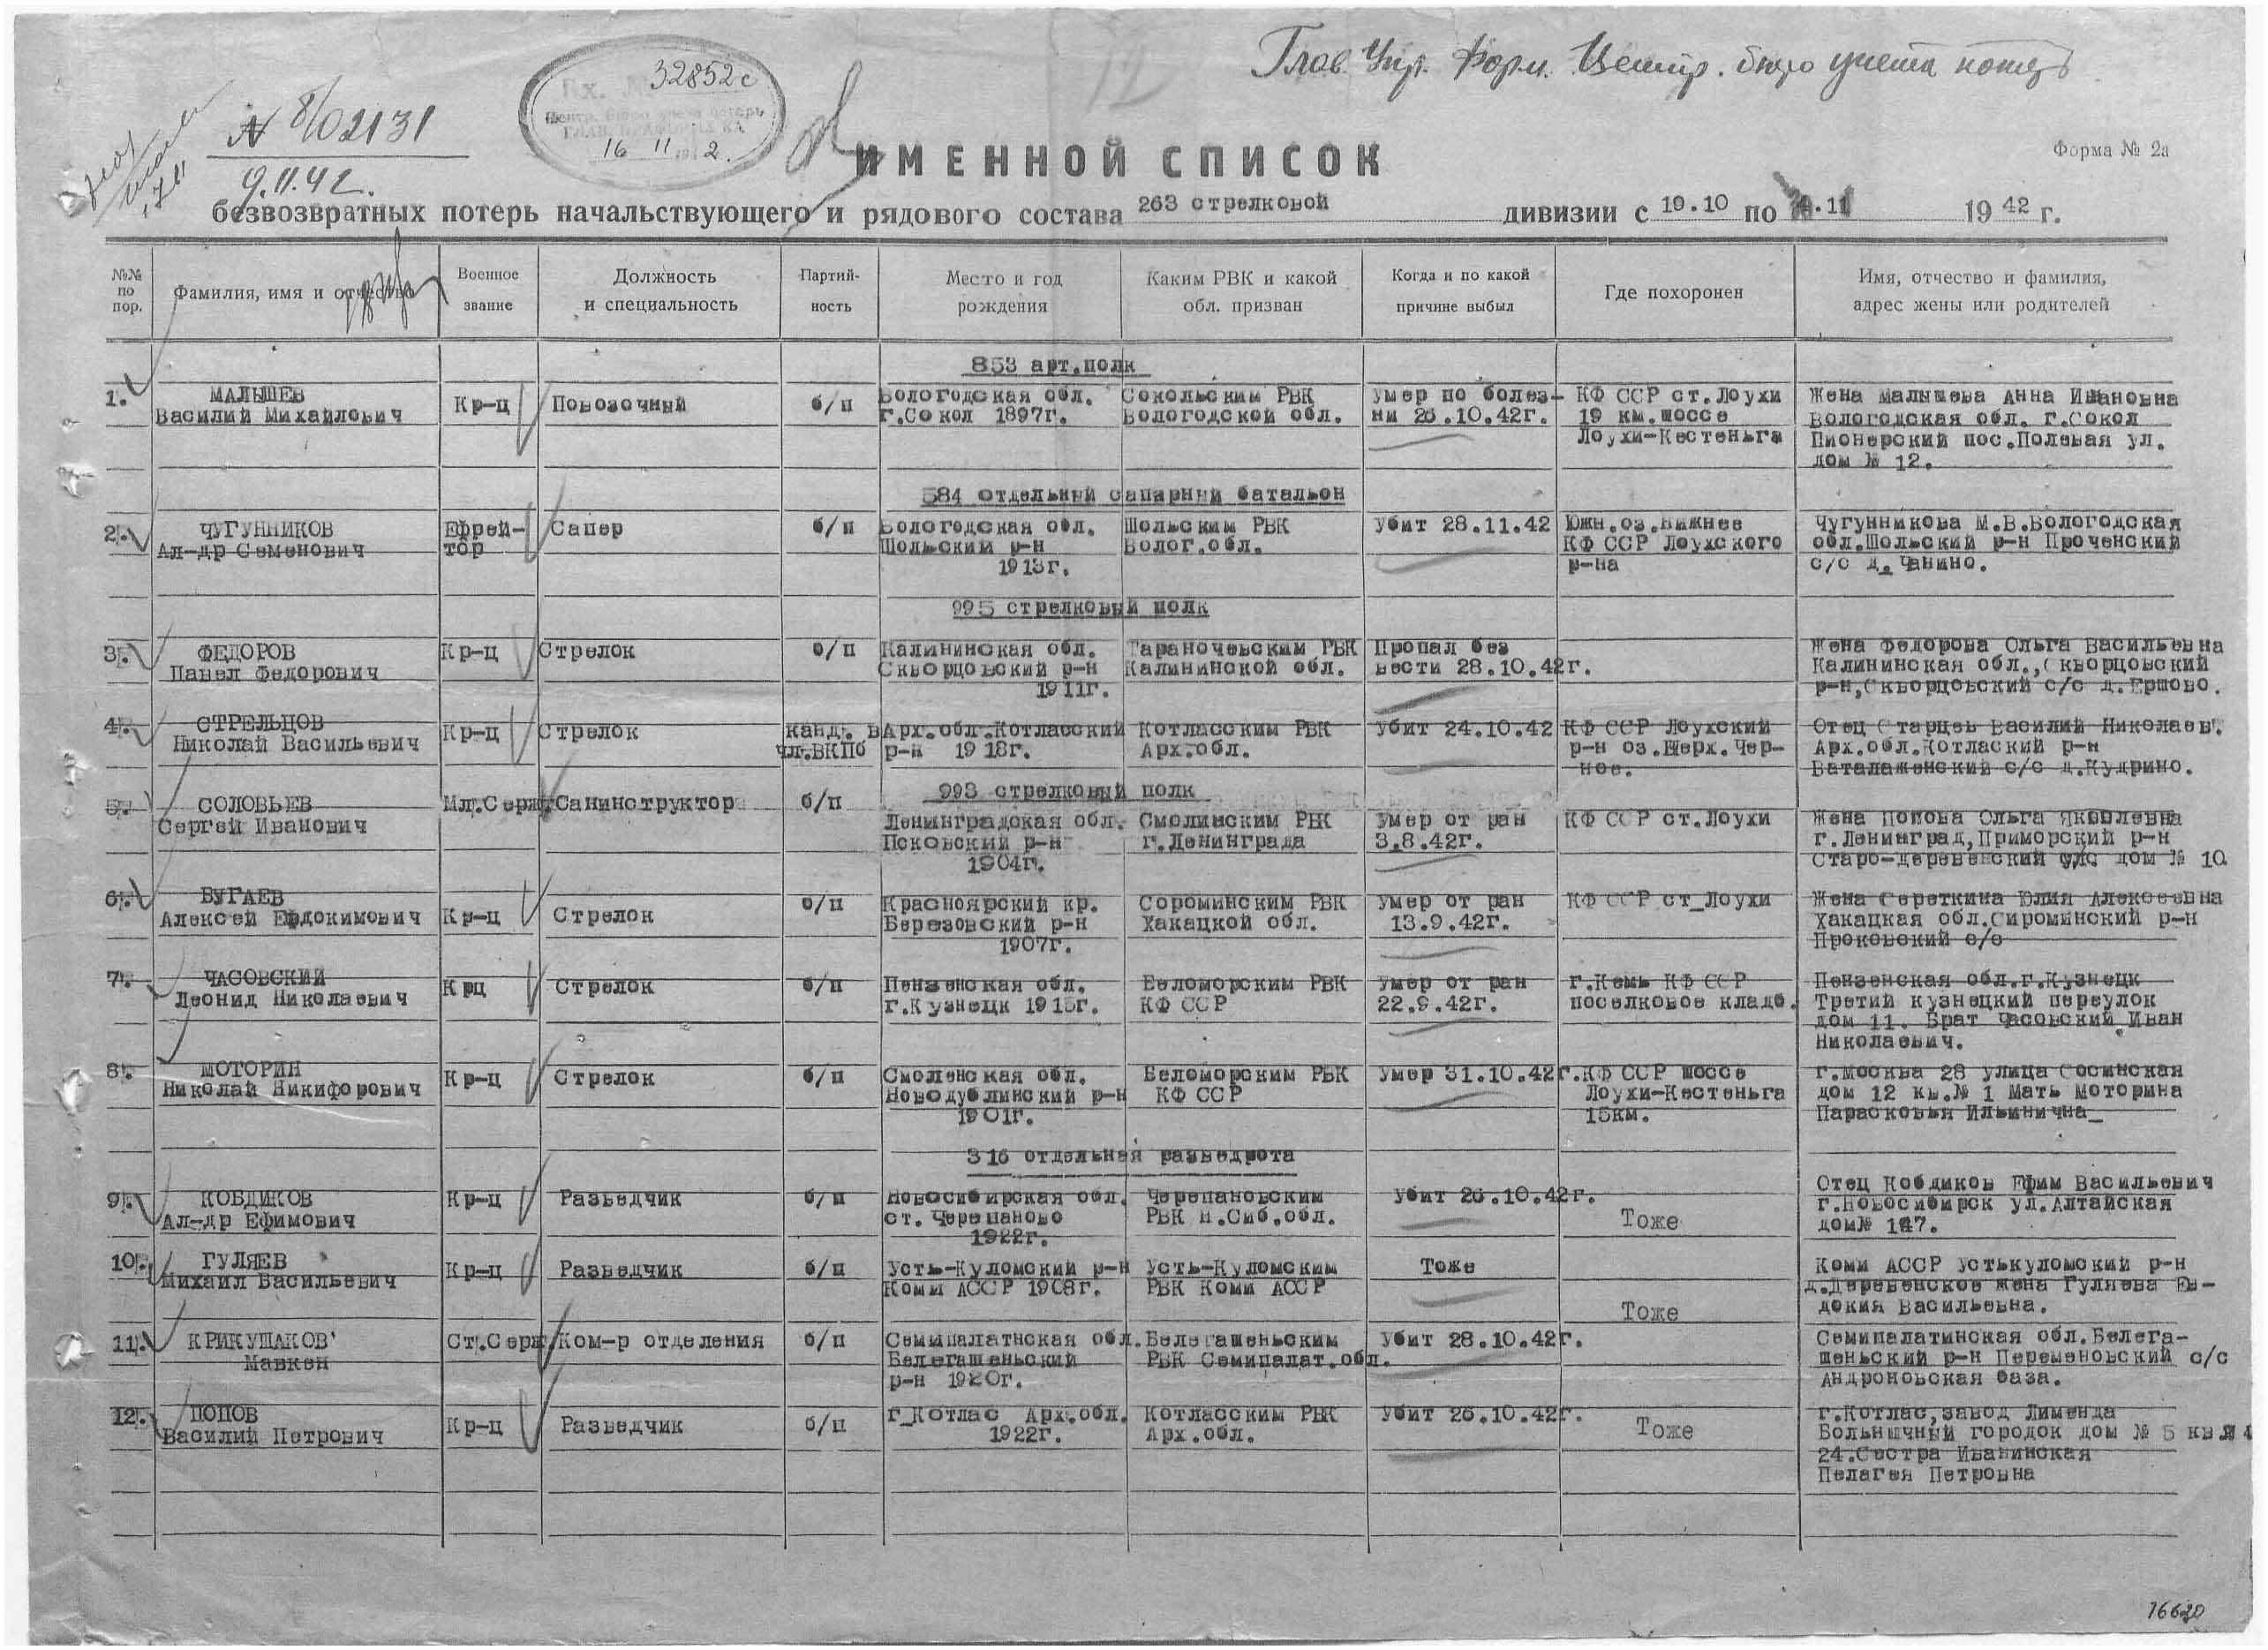 Глав. Упр. Форм. Центр. бюро учета потерь
32852с
Центр. бюро учета потерь
16 11 2.
№ 8/02131
9.11.42.
ИМЕННОЙ СПИСОК
Форма № 2а
безвозвратных потерь начальствующего и рядового состава 263 стрелковой дивизии с 19.10 по .11 1942 г.
№№ по пор.
Фамилия, имя и отчество
Военное звание
Должность и специальность
Партий- ность
Место и год рождения
Каким РВК и какой обл. призван
Когда и по какой причине выбыл
Где похоронен
Имя, отчество и фамилия, адрес жены или родителей
853 арт.полк
1. МАЛЫШЕВ Кр-ц Повозочный б/п Вологодская обл. Сокольским РВК Умер по болез- КФ ССР ст.Лоухи Жена Малышева Анна Ивановна
Василий Михайлович г.Сокол 1897г. Вологодской обл. ни 26.10.42г. 19 км.шоссе Вологодская обл. г.Сокол
Лоухи-Кестеньга Пионерский пос.Полевая ул.
дом № 12.
584 отдельный сапарный батальон
2. ЧУГУННИКОВ Ефрей- Сапер б/п Вологодская обл. Шольским РВК Убит 28.11.42 Южн.оз.Нижнее Чугунникова М.В.Вологодская
Ал-др Семенович тор Шольский р-н Волог.обл. КФ ССР Лоухского обл.Шольский р-н Проченский
1913г. р-на с/с д. Чанино.
995 стрелковый полк
3. ФЕДОРОВ Кр-ц Стрелок б/п Калининская обл. Тараночевским РВК Пропал без Жена Федорова Ольга Васильевна
Павел Федорович Скворцовский р-н Калининской обл. вести 28.10.42г. Калининская обл.,Скворцовский
1911г. р-н,Скворцовский с/с д.Ершово.
4. СТРЕЛЬЦОВ Кр-ц Стрелок канд. в Арх.обл.Котласский Котласским РВК Убит 24.10.42 КФ ССР Лоухский Отец Старцев Василий Николаев.
Николай Васильевич чл.ВКПб р-н 1918г. Арх.обл. р-н оз.Верх.Чер- Арх.обл.Котлаский р-н
ное. Ваталаженский с/с д.Кудрино.
993 стрелковый полк
5. СОЛОВЬЕВ Мл.Серж. Санинструктор б/п Ленинградская обл. Смолинским РВК Умер от ран КФ ССР ст.Лоухи Жена Попова Ольга Яковлевна
Сергей Иванович Псковский р-н г.Ленинграда 3.8.42г. г.Ленинград,Приморский р-н
1904г. Старо-деревенский дом № 10
6. БУГАЕВ Кр-ц Стрелок б/п Красноярский кр. Сороминским РВК Умер от ран КФ ССР ст_Лоухи Жена Сереткина Юлия Алексеевна
Алексей Евдокимович Березовский р-н Хакацкой обл. 13.9.42г. Хакацкая обл.Сироминский р-н
1907г. Проковский с/с
7. ЧАСОВСКИЙ Крц Стрелок б/п Пензенская обл. Беломорским РВК Умер от ран г.Кемь КФ ССР Пензенская обл.г.Кузнецк
Леонид Николаевич г.Кузнецк 1915г. КФ ССР 22.9.42г. поселковое кладб. Третий кузнецкий переулок
дом 11. Брат Часовский Иван
Николаевич.
8. МОТОРИН Кр-ц Стрелок б/п Смоленская обл. Беломорским РВК Умер 31.10.42г. КФ ССР шоссе г.Москва 28 улица Сосинская
Николай Никифорович Новодублинский р-н КФ ССР Лоухи-Кестеньга дом 12 кв.№ 1 Мать Моторина
1901г. 15км. Парасковья Ильинична_
316 отдельная разведрота
9. КОБДИКОВ Кр-ц Разведчик б/п Новосибирская обл. Черепановским Убит 26.10.42г. Тоже Отец Кобдиков Ефим Васильевич
Ал-др Ефимович ст. Черепаново РВК Н.Сиб.обл. г.Новосибирск ул.Алтайская
1922г. дом№ 147.
10. ГУЛЯЕВ Кр-ц Разведчик б/п Усть-Куломский р-н Усть-Куломским Тоже Тоже Коми АССР Устькуломский р-н
Михаил Васильевич Коми АССР 1908г. РВК Коми АССР д.Деревенское жена Гуляева Ев-
докия Васильевна.
11. КРИКУШАКОВ Ст.Серж. Ком-р отделения б/п Семипалатнская обл. Белегашеньским Убит 28.10.42г. Семипалатинская обл.Белега-
Мавкен Белегашеньский РВК Семипалат.обл. шеньский р-н Переменовский с/с
р-н 1920г. Андроновская база.
12. ПОПОВ Кр-ц Разведчик б/п г_Котлас Арх.обл. Котласским РВК Убит 26.10.42г. Тоже г.Котлас,завод Лименда
Василий Петрович 1922г. Арх.обл. Больничный городок дом № 5 кв.№
24.Сестра Иванинская
Пелагея Петровна
16620